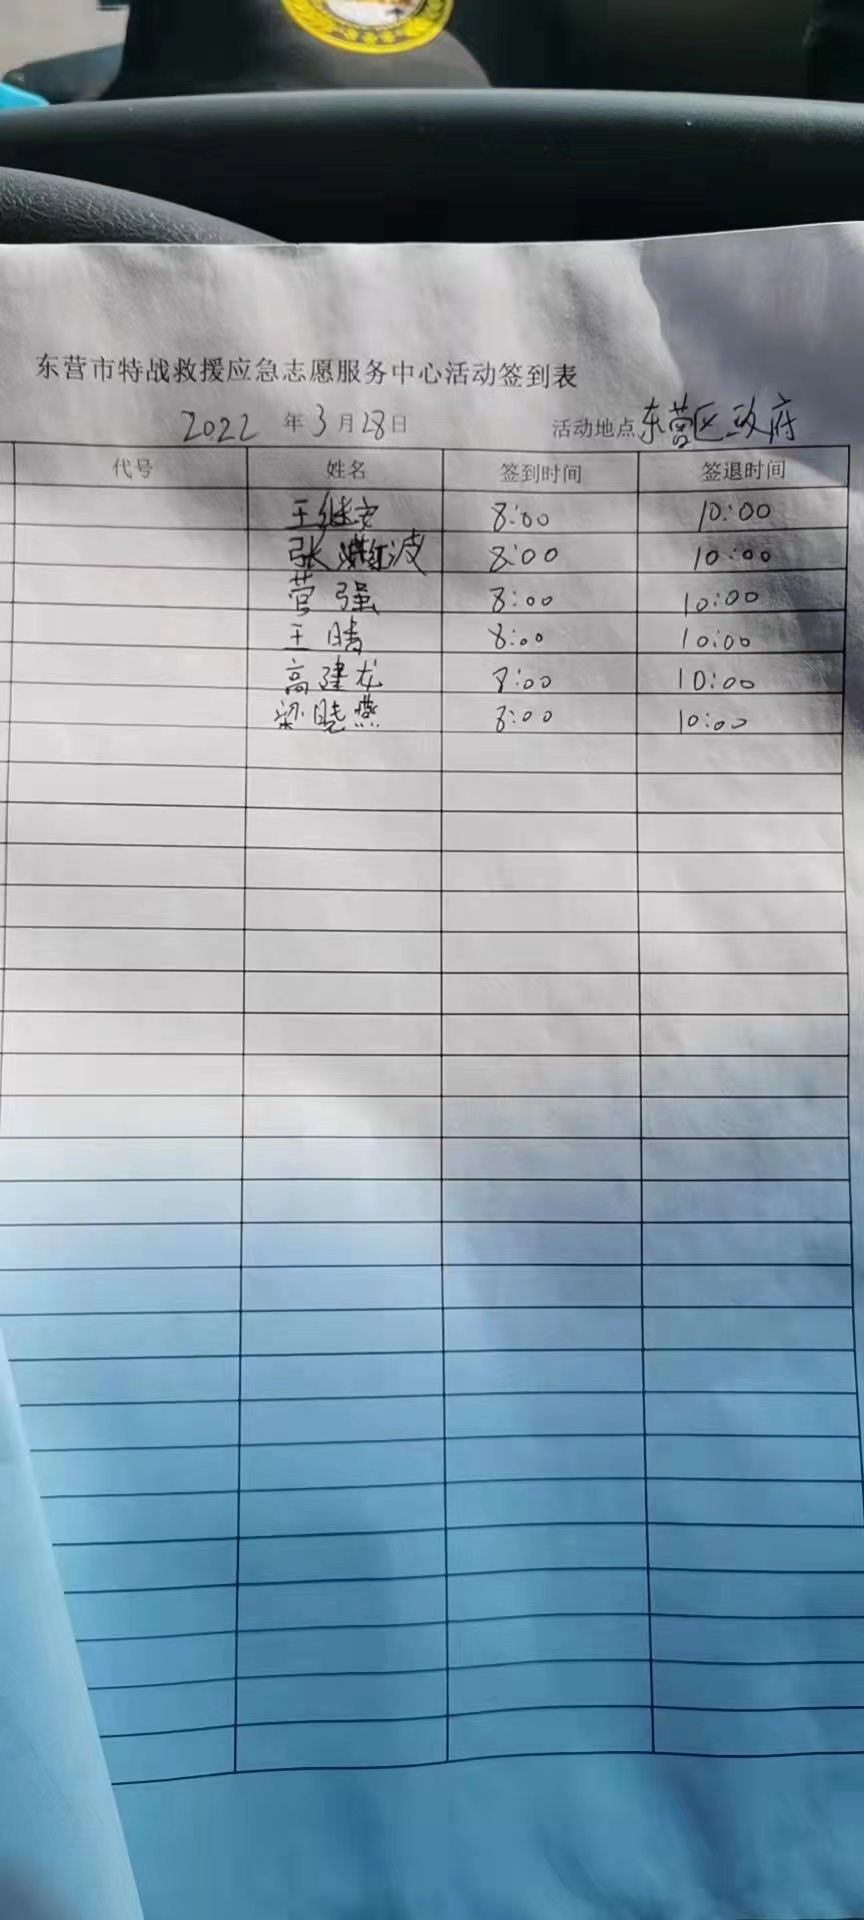 东营市特战救援应急志愿服务中心活动签到表
2022 年 3 月 28 日 活动地点 东营区政府
代号 姓名 签到时间 签退时间
王继安 8:00 10:00
张 波 8:00 10:00
营强 8:00 10:00
王晴 8:00 10:00
高建龙 8:00 10:00
梁晓燕 8:00 10:00